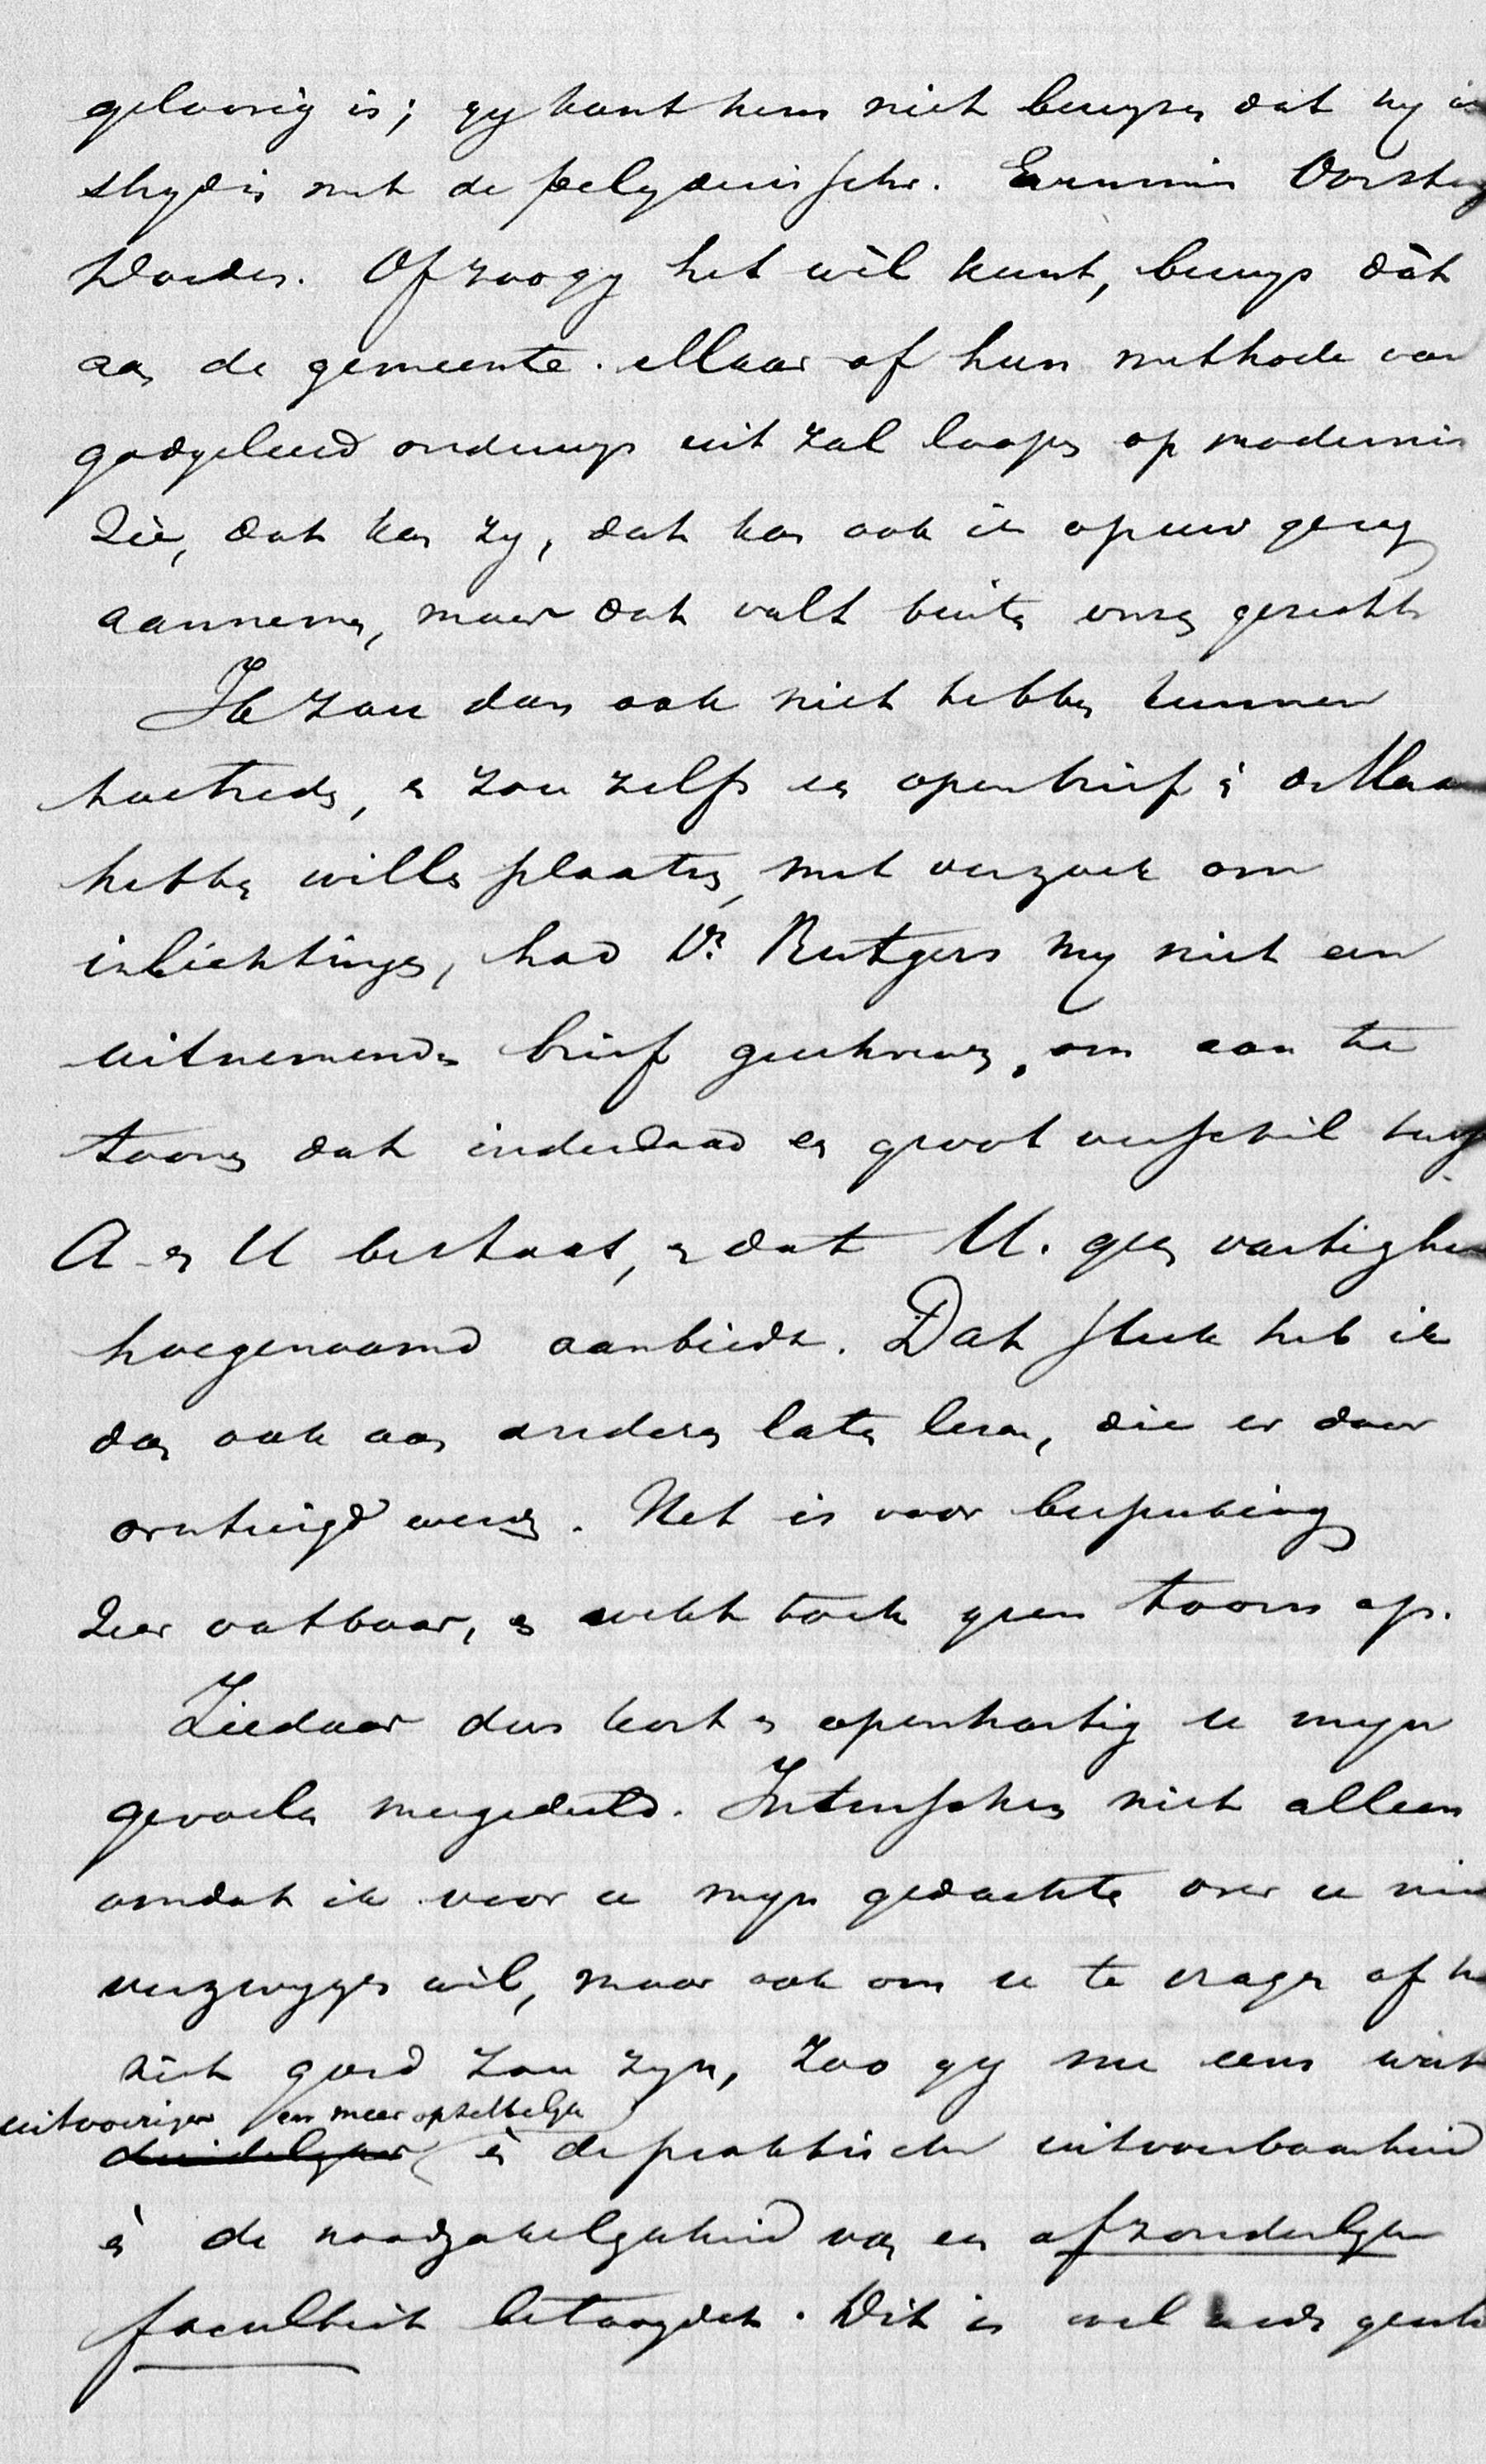 geloovig is; gy kunt hem niet bewyzen dat hy in
stryd is met de belydenisschr. Vorstius
Worden. Of zoo gy het wèl kunt, bewys dàt
aan de gemeente. Maar of hun methode van
godgeleerd onderwys uit zal loopen op modernis
Zie, dat kan zy, dat kan ook ik op uw gezag
aannemen, maar dat valt buiten onze gezichts
Ik zou dan ook niet hebben kunnen
toetreden, en zou zelfs een open brief in de
hebben willen plaatsen, met verzoek om
inlichtingen, had Dr. Rutgers my niet een
uitnemenden brief geschreven, om aan te
toonen dat inderdaad een groot verschil tussch
A en U bestaat, en dat U. geen vastighe
hoegenaamd aanbiedt. Dat stuk heb ik
dan ook aan anderen laten lezen, die er door
overtuigd werden. Het is voor bespreking
zeer vatbaar, en wekt toch geen toorn op.
Ziedaar dus kort en openhartig u myn
gevoelen meegedeeld. Intusschen niet alleen
omdat ik voor u myn gedachten over u niet
verzwygen wil, maar ook om u te vragen of h
niet goed zou zyn, zoo gy nu eens wat
uitvoeriger en meer opzettelyk
duidelyker èn de praktische uitvoerbaarheid
èn de noodzakelykheid van een afzonderlyke
faculteit betoogdet. Dit is wel reeds